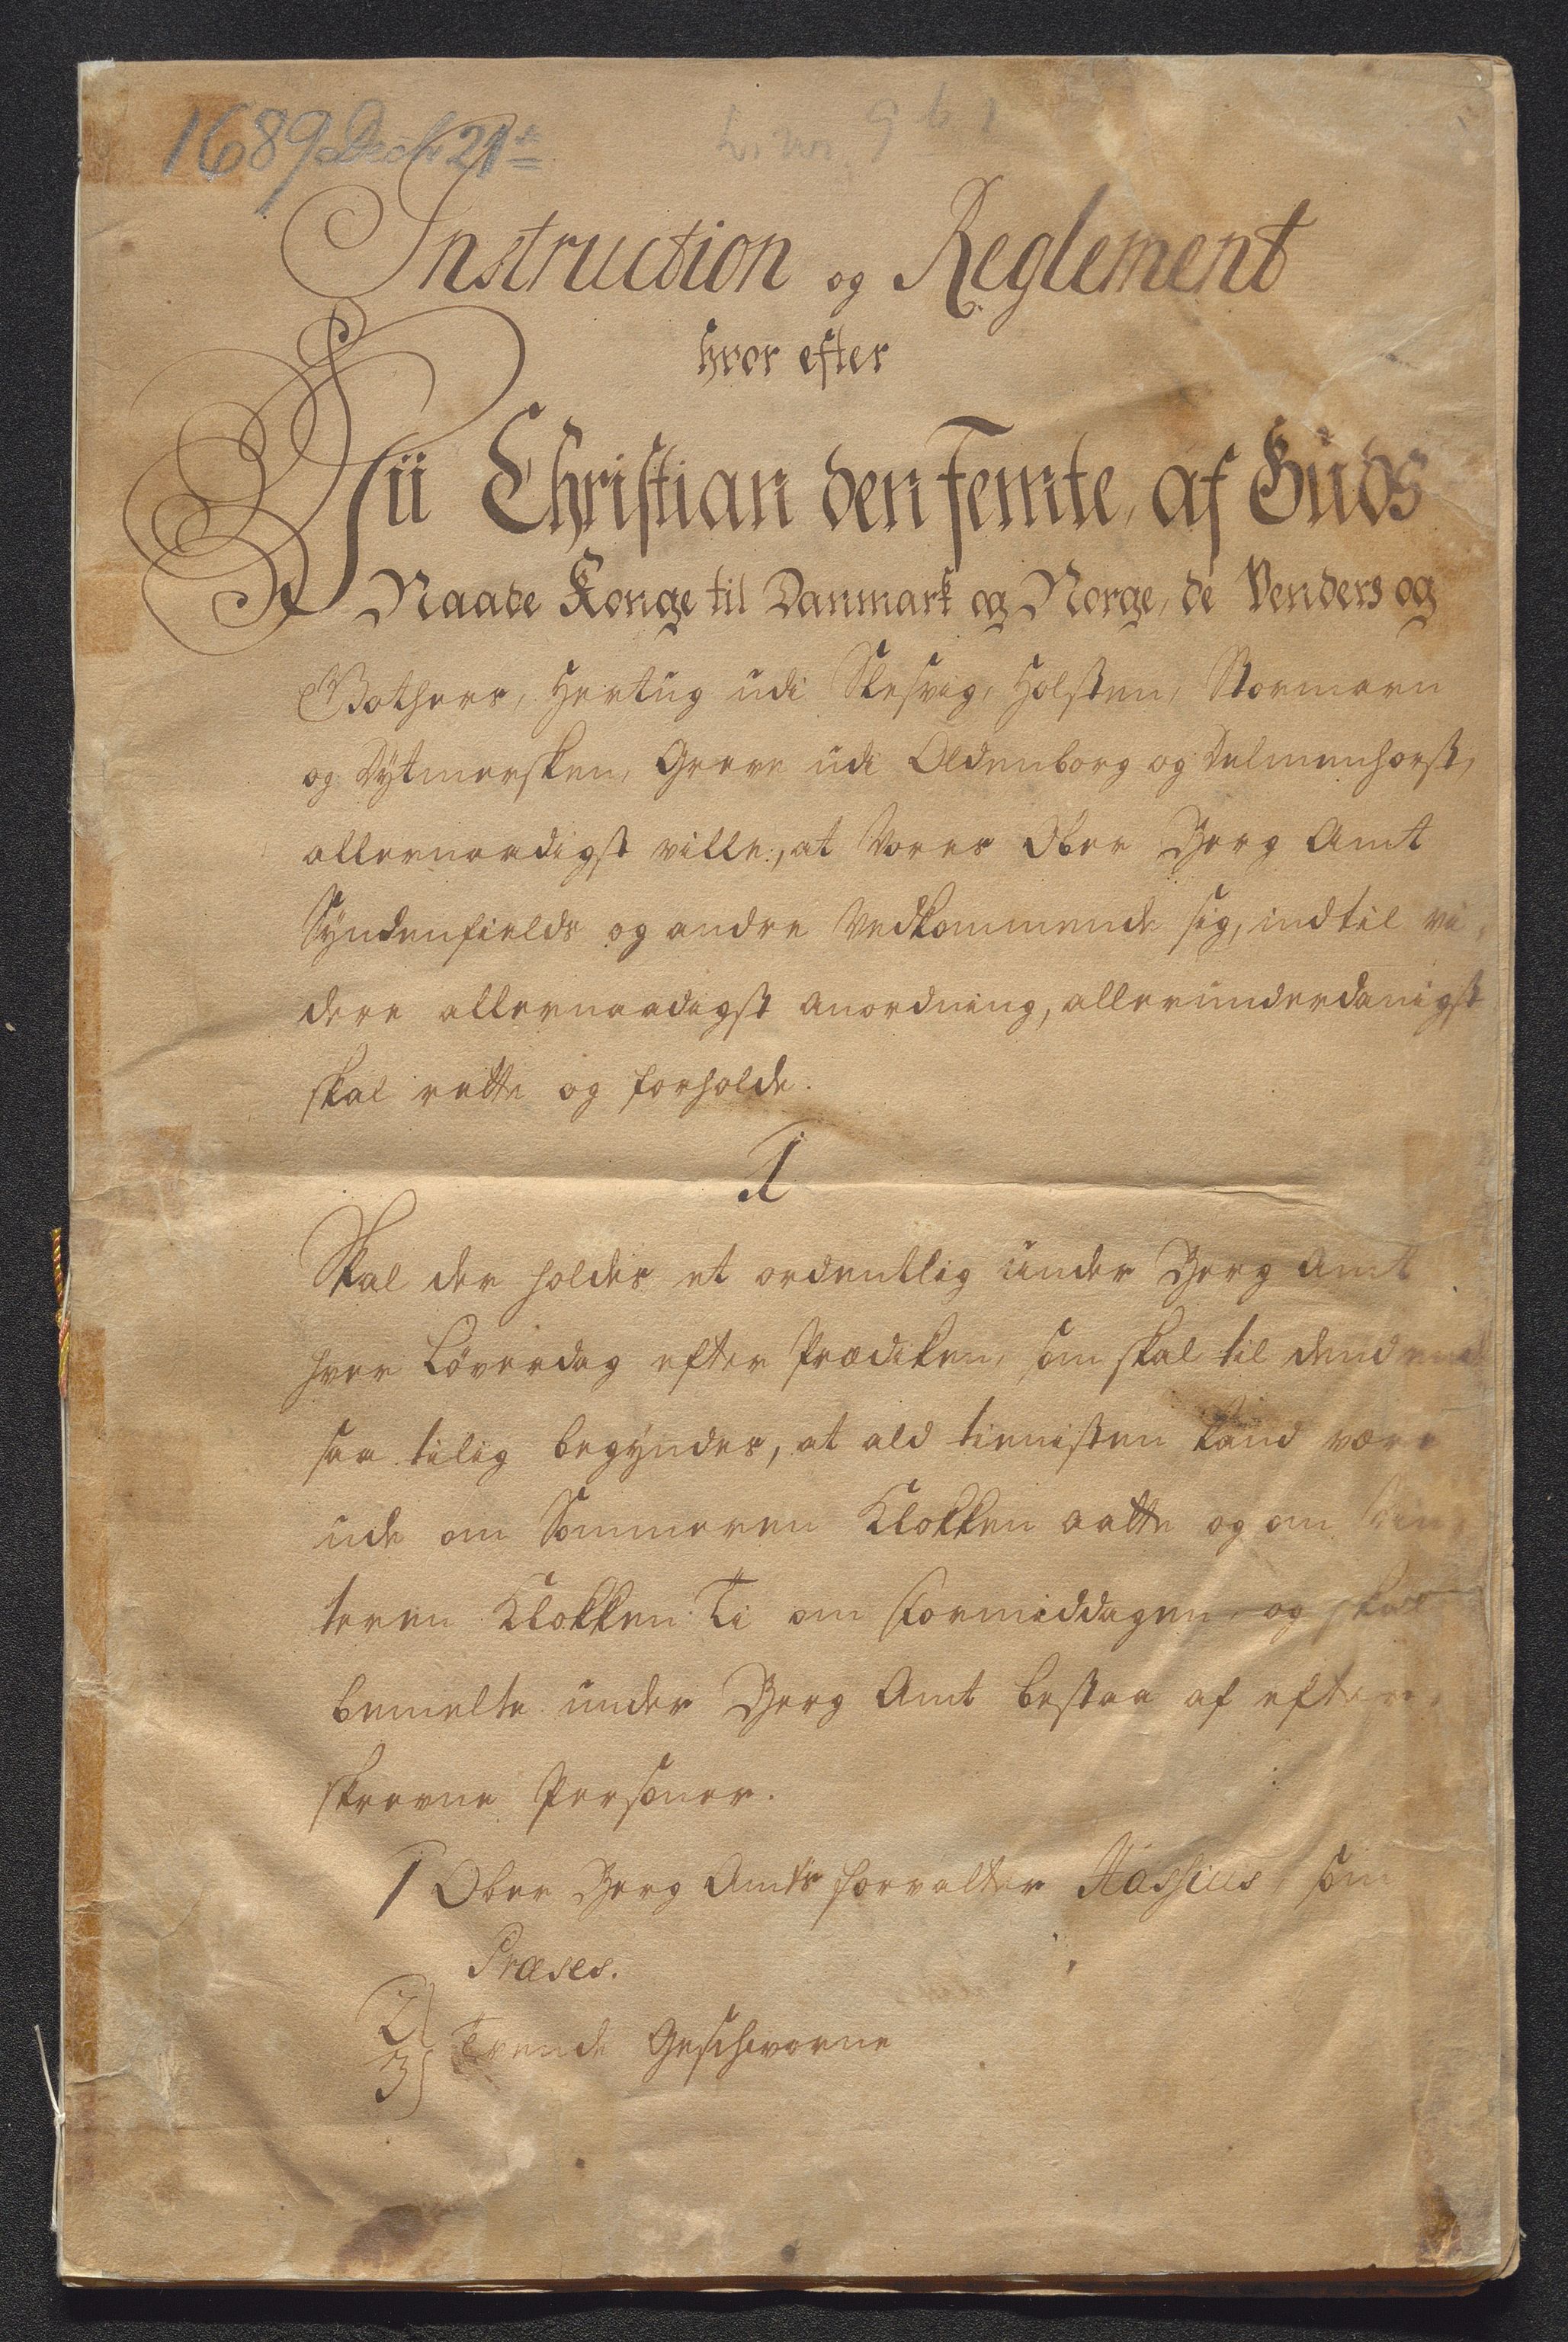 1689 Decbr 21de
Instruction og Reglement
hvor efter
Vii Christian den Femte, af Guds
Naade Konge til Danmark og Norge, de Venders og
Gothers, Hertug udi Slesvig, Holsten, Stormarn
og Dytmersken, Greve udi Oldenborg og Delmenhorst,
allernaadigst ville, at Vores Ober Berg Amt
Syndenfields og andre Vedkommende sig, indtil vi,
dere allernaadigst anordning, allerunderdanigst
skal rette og forholde.
1
Skal der holdes et ordentlig under Berg Amt
hver Løverdag efter Prædiken, som skal til dend
saa tilig begyndes, at ald tienisten kand være
ude om Sommeren Klokken aatte og om Vin,
teren Klokken Ti om Formiddagen, og skal
bemelte under Berg Amt bestaa af efter,
skrevne Personer.
1 Ober Berg Amts forvalter Hassius som
Præses.
2)
3) Tvende Geschworne